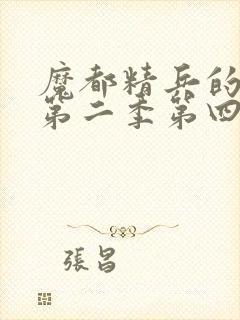 魔都精兵的
第二季第四
張昌